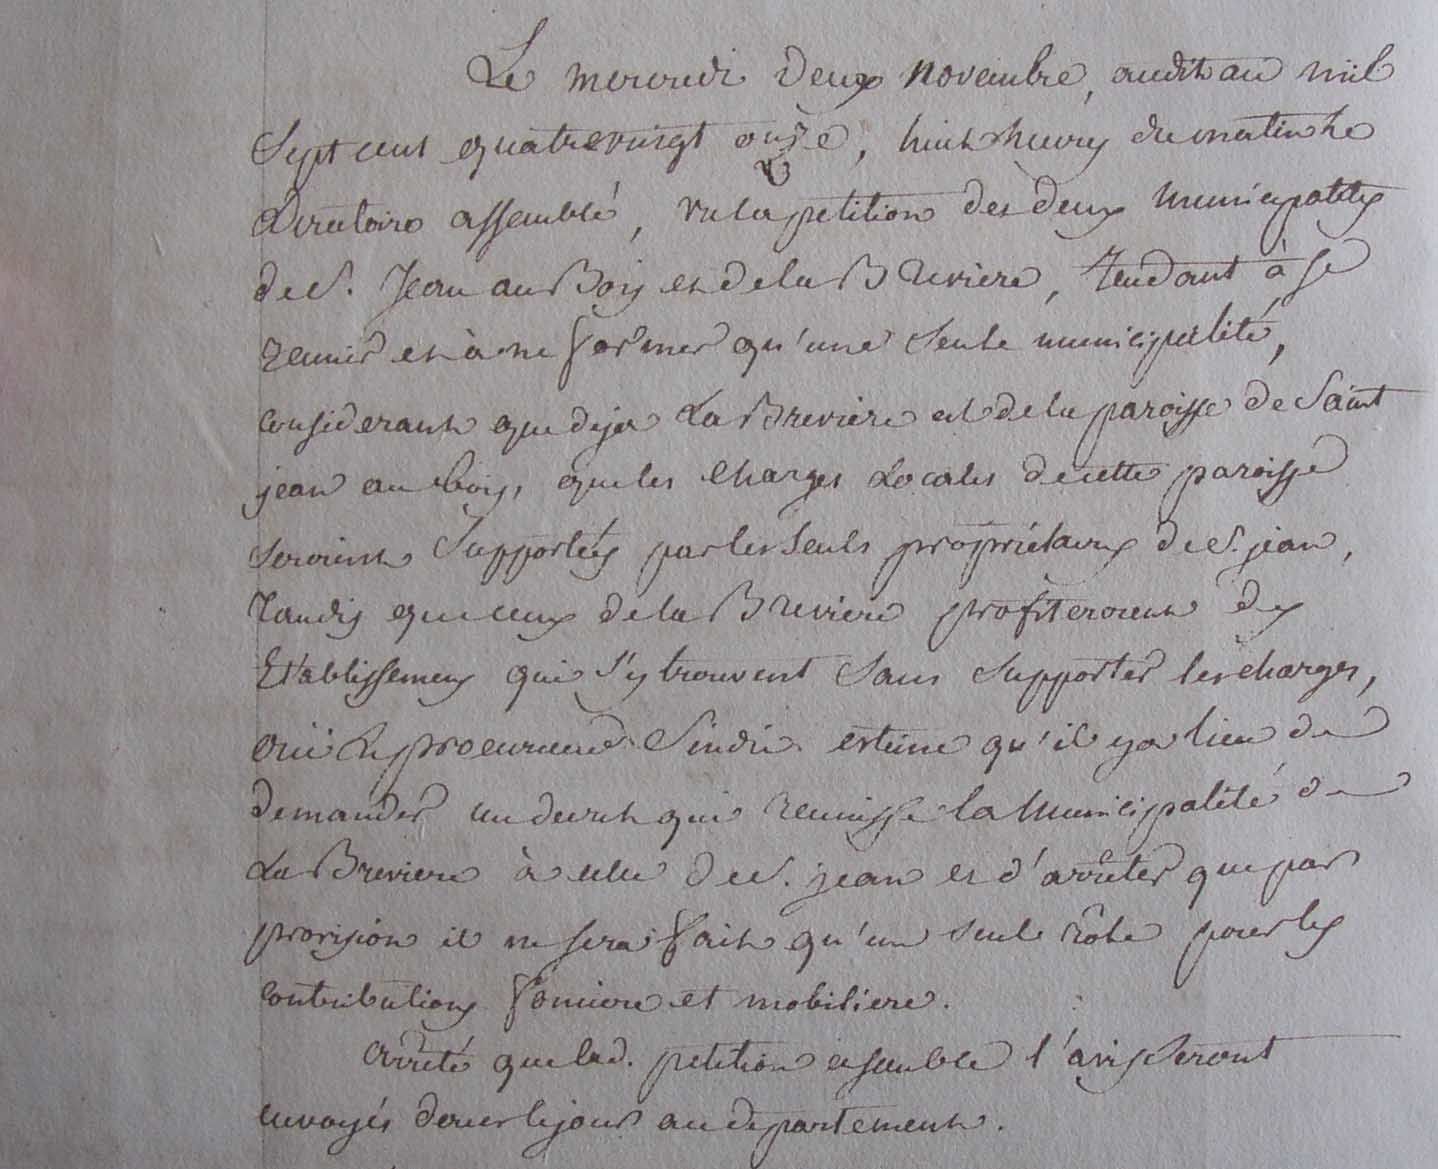 Le mercredi deux novembre, audit an mil
Sept cent quatrevingt onze, huit heures du matin le
Directoire assemblé, vu la petition des deux municipalités
de S. Jean au Bois et de la Breviere, tendant à se
reunir et à ne former qu'une seule municipalité,
considerant que deja La Breviere est de la paroisse de Saint
jean au bois, que les charges Locales de cette paroisse
seroient Supportées par les seuls propriétaires de S. jean,
Tandis que ceux de la Breviere profiteroient des
Etablissemens qui s'y trouvent sans supporter les charges,
oui le procureur Sindic estime qu'il y a lieu de
demander un decret qui reunisse la Municipalité de
La Breviere à celle de S. jean et d'arrêter que par
provision il ne sera fait qu'un seul rôle pour les
contributions fonciere et mobiliere.
Arrêté que lad. petition ensemble l'avis seront
envoyés dans le jour au departement.